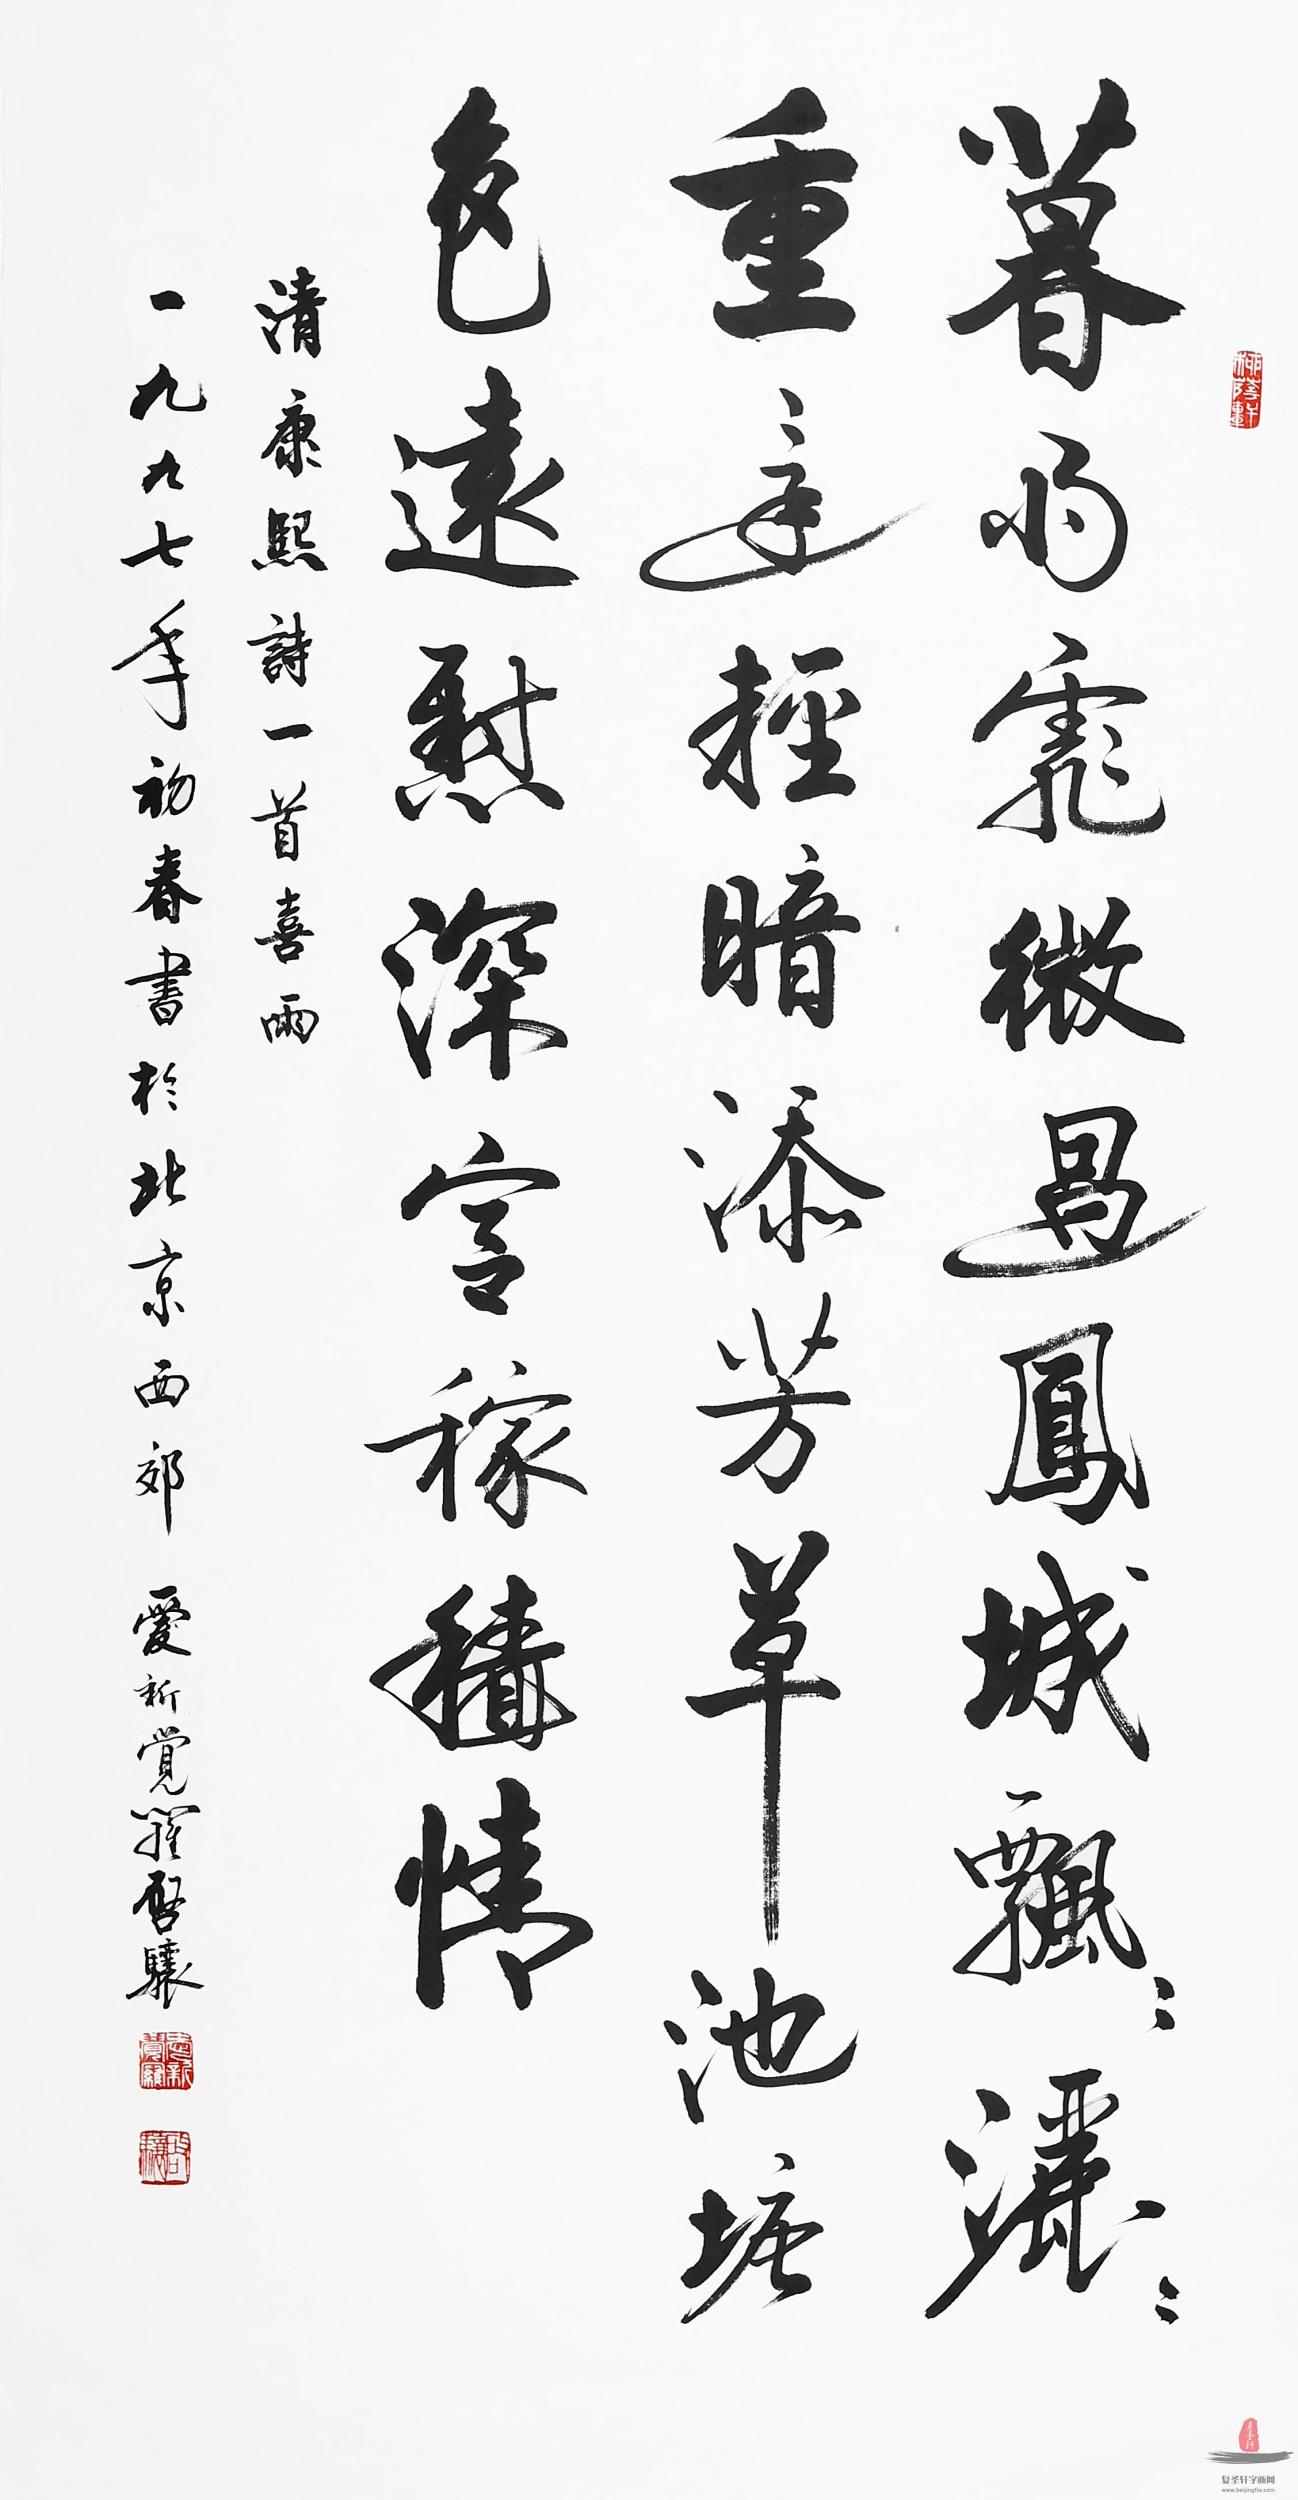 暮雨霏微過鳳城飄〻灑〻
重還輕暗添芳草池塘
色遠慰深宫稼穡情
清康熙詩一首喜雨
一九九七年初春書於北京西郊 愛新覺羅啓驤
愛新覺羅
啓驤
复圣轩字画网
www.beijingfsx.com